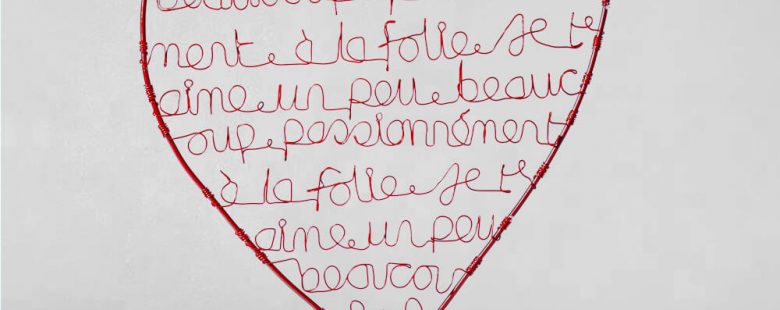 beaucoup
ment à la folie Je te
aime un peu beauc
oup passionnément
à la folie Je te
aime un peu
beaucou